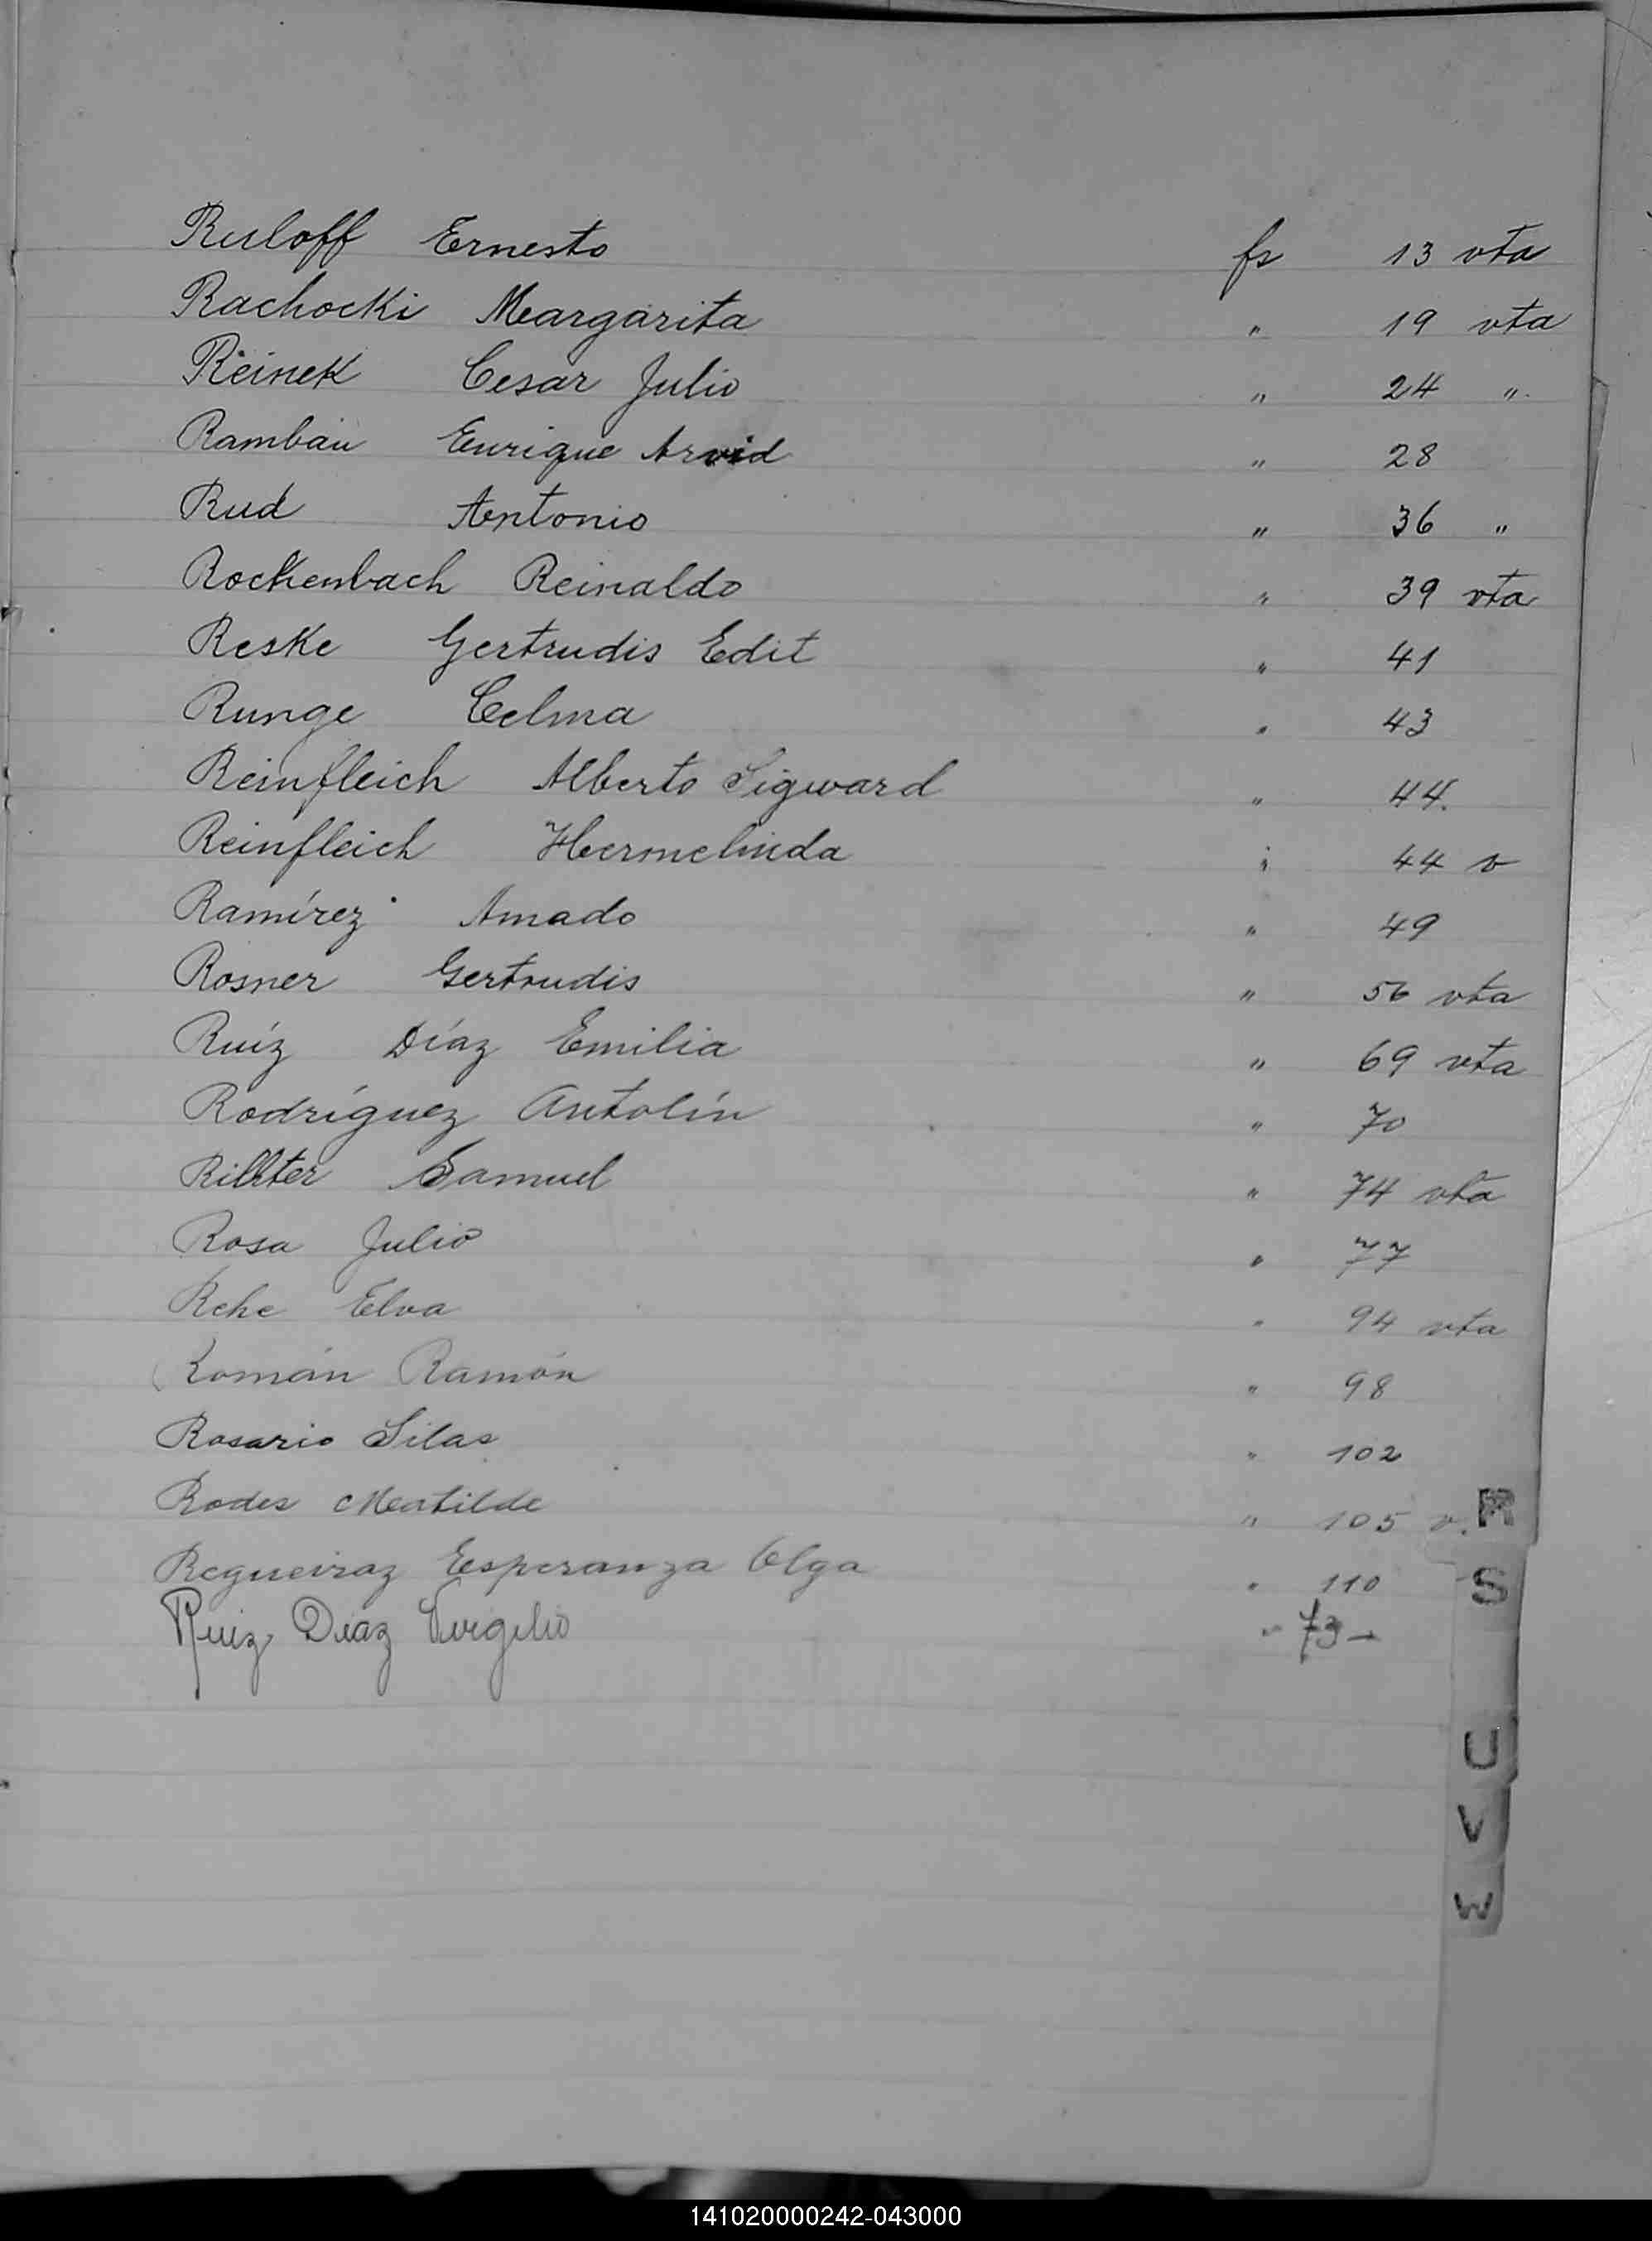 Ruloff Ernesto fs 13 vta
Rachocki Margarita " 19 vta
Reinek Cesar Julio " 24 "
Rambau Enrique Arvid " 28
Rud Antonio " 36 "
Rockenbach Reinaldo " 39 vta
Reske Gertrudis Edit " 41
Runge Celma " 43
Reinfleich Alberto Sigward " 44.
Reinfleich Hermelinda " 44 v
Ramírez Amado " 49
Rosner Gertrudis " 56 vta
Ruíz Díaz Emilia " 69 vta
Rodríguez Antolín " 70
Samuel " 74 vta
Rosa Julio " 77
Rehe Elva " 94 vta
Román Ramón " 98
Rosario Silas " 102
Rodes Matilde " 105 v.
Regueiraz Esperanza Olga " 110
Ruiz Diaz Virgilio " 73 -
R
S
U
V
W
141020000242-043000